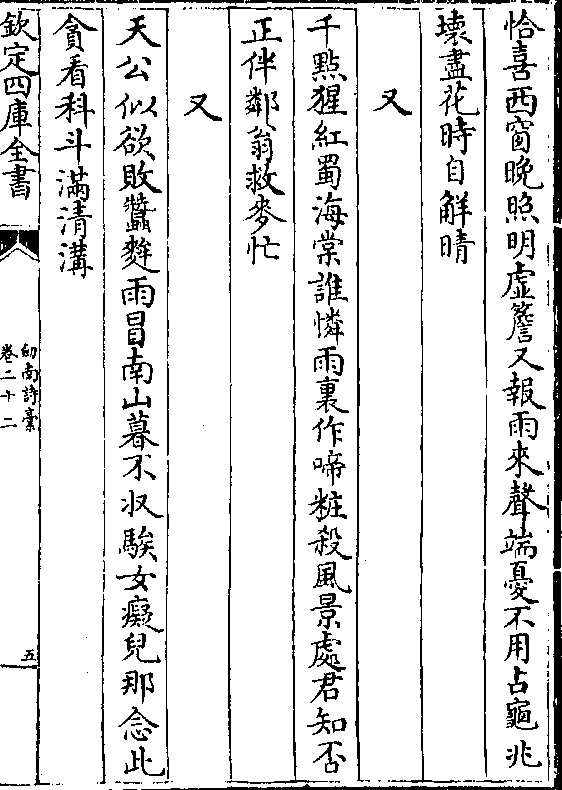 恰喜西窗晚照明虚簷又報雨來聲端憂不用占龜兆
壞盡花時自解晴
又
千點猩紅蜀海棠誰憐雨裏作啼粧殺風景處君知否
正伴鄰翁救麥忙
又
天公似欲敗蠶麰雨冒南山暮不収騃女癡兒那念此
貪看科斗滿清溝
欽定四庫全書
劒南詩稾
卷二十二
五